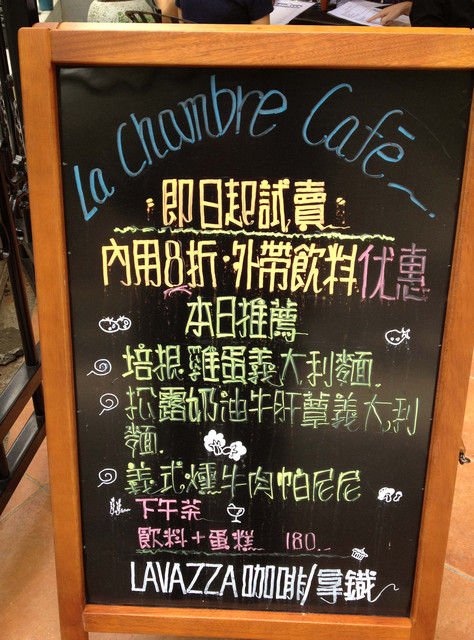 La Chambre Café
即日起試賣
內用8折・外帶飲料优惠
本日推薦
培根雞蛋義大利麵.
松露奶油牛肝蕈義大利
麵.
義式燻牛肉帕尼尼
下午茶
飲料+蛋糕 180.
LAVAZZA咖啡/拿鐵